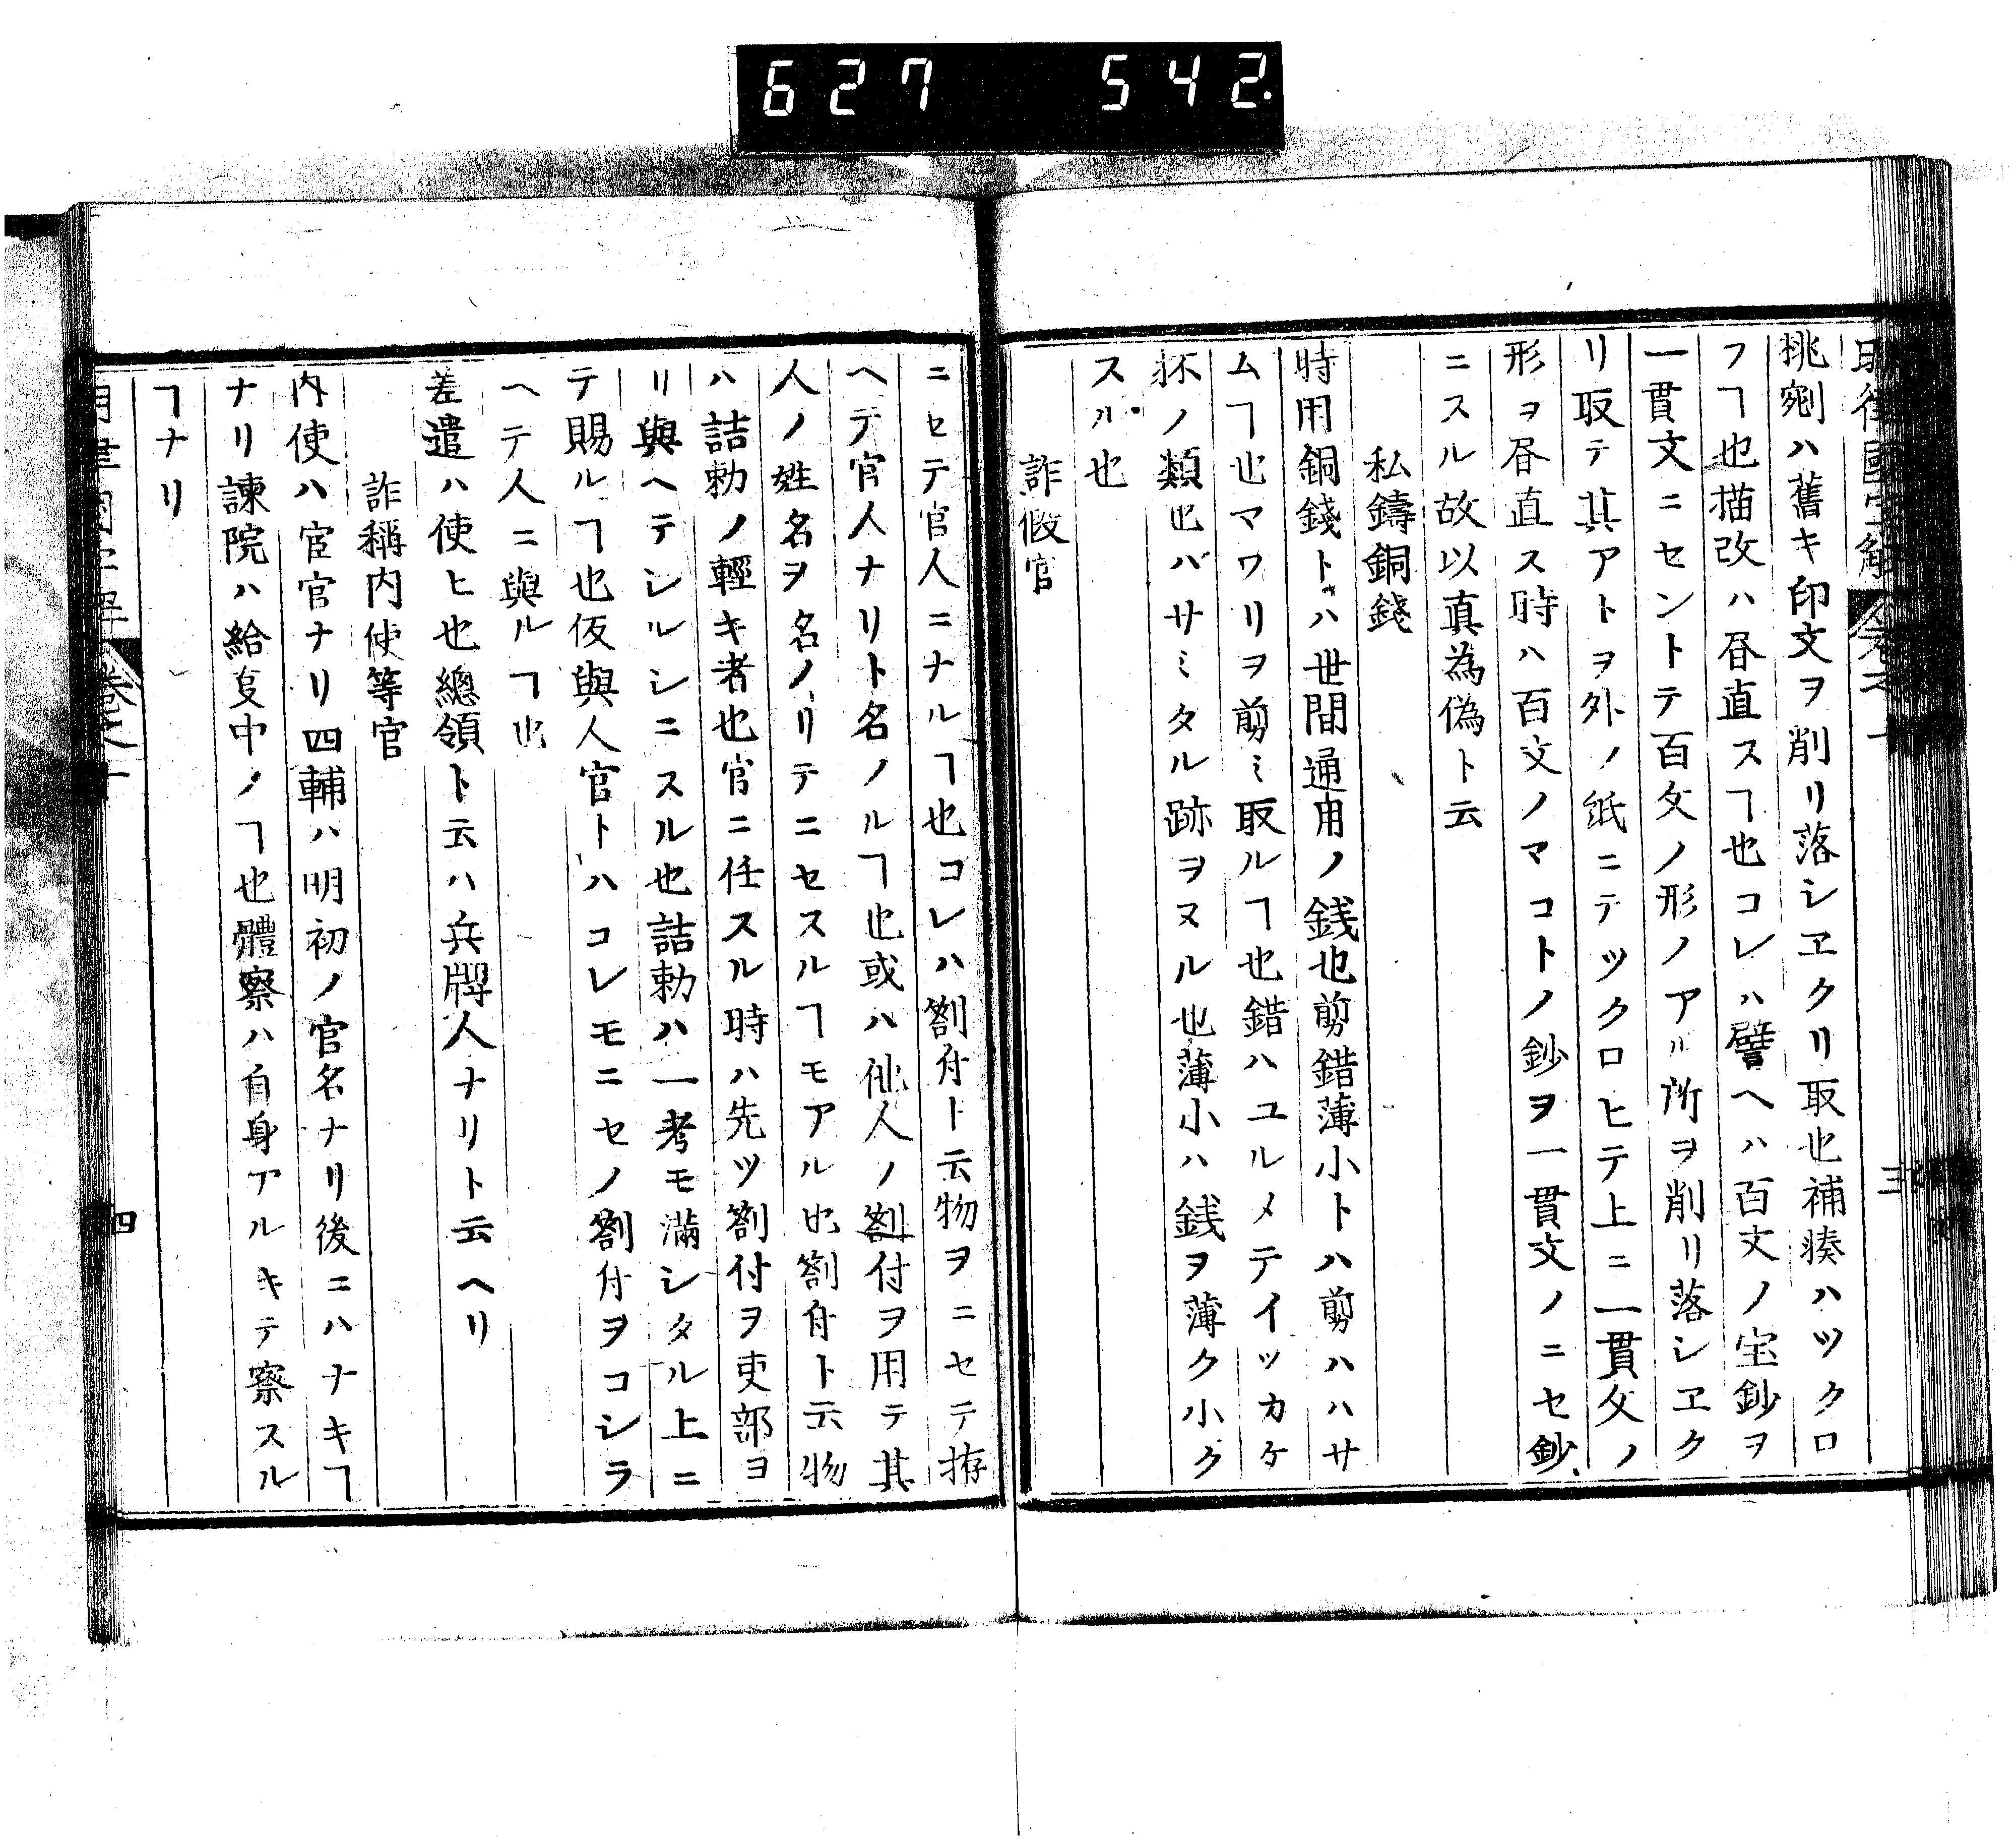 627 542.
明律國字解 卷之十 三
挑剜ハ舊キ印文ヲ削リ落シヱクリ取也補湊ハツクロ
フヿ也描改ハ昼直スヿ也コレハ譬ヘハ百文ノ宝鈔ヲ
一貫文ニセントテ百文ノ形ノアル所ヲ削リ落シヱク
リ取テ其アトヲ外ノ紙ニテツクロヒテ上ニ一貫文ノ
形ヲ昼直ス時ハ百文ノマコトノ鈔ヲ一貫文ノニセ鈔
ニスル故以真為偽ト云
私鑄銅錢
時用銅錢トハ世間通用ノ銭也剪錯薄小トハ剪ハハサ
ムヿ也マワリヲ剪ミ取ルヿ也錯ハユルメテイツカケ
抔ノ類也バサミタル跡ヲヌル也薄小ハ銭ヲ薄ク小ク
スル也
詐假官
ニセテ官人ニナルヿ也コレハ劄付ト云物ヲニセテ拵
ヘテ官人ナリト名ノルヿ也或ハ他人ノ劄付ヲ用テ其
人ノ姓名ヲ名ノリテニセスルヿモアル也劄付ト云物
ハ詰勅ノ輕キ者也官ニ任スル時ハ先ツ劄付ヲ吏部ヨ
リ與ヘテシルシニスル也詰勅ハ一考モ滿シタル上ニ
テ賜ルヿ也仮與人官トハコレモニセノ劄付ヲコシラ
ヘテ人ニ與ルヿ也
差遣ハ使ヒ也總領ト云ハ兵牌人ナリト云ヘリ
詐稱内使等官
内使ハ宦官ナリ四輔ハ明初ノ官名ナリ後ニハナキヿ
ナリ諫院ハ給叓中ノヿ也體察ハ自身アルキテ察スル
ヿナリ
明律國字解 卷之十 四